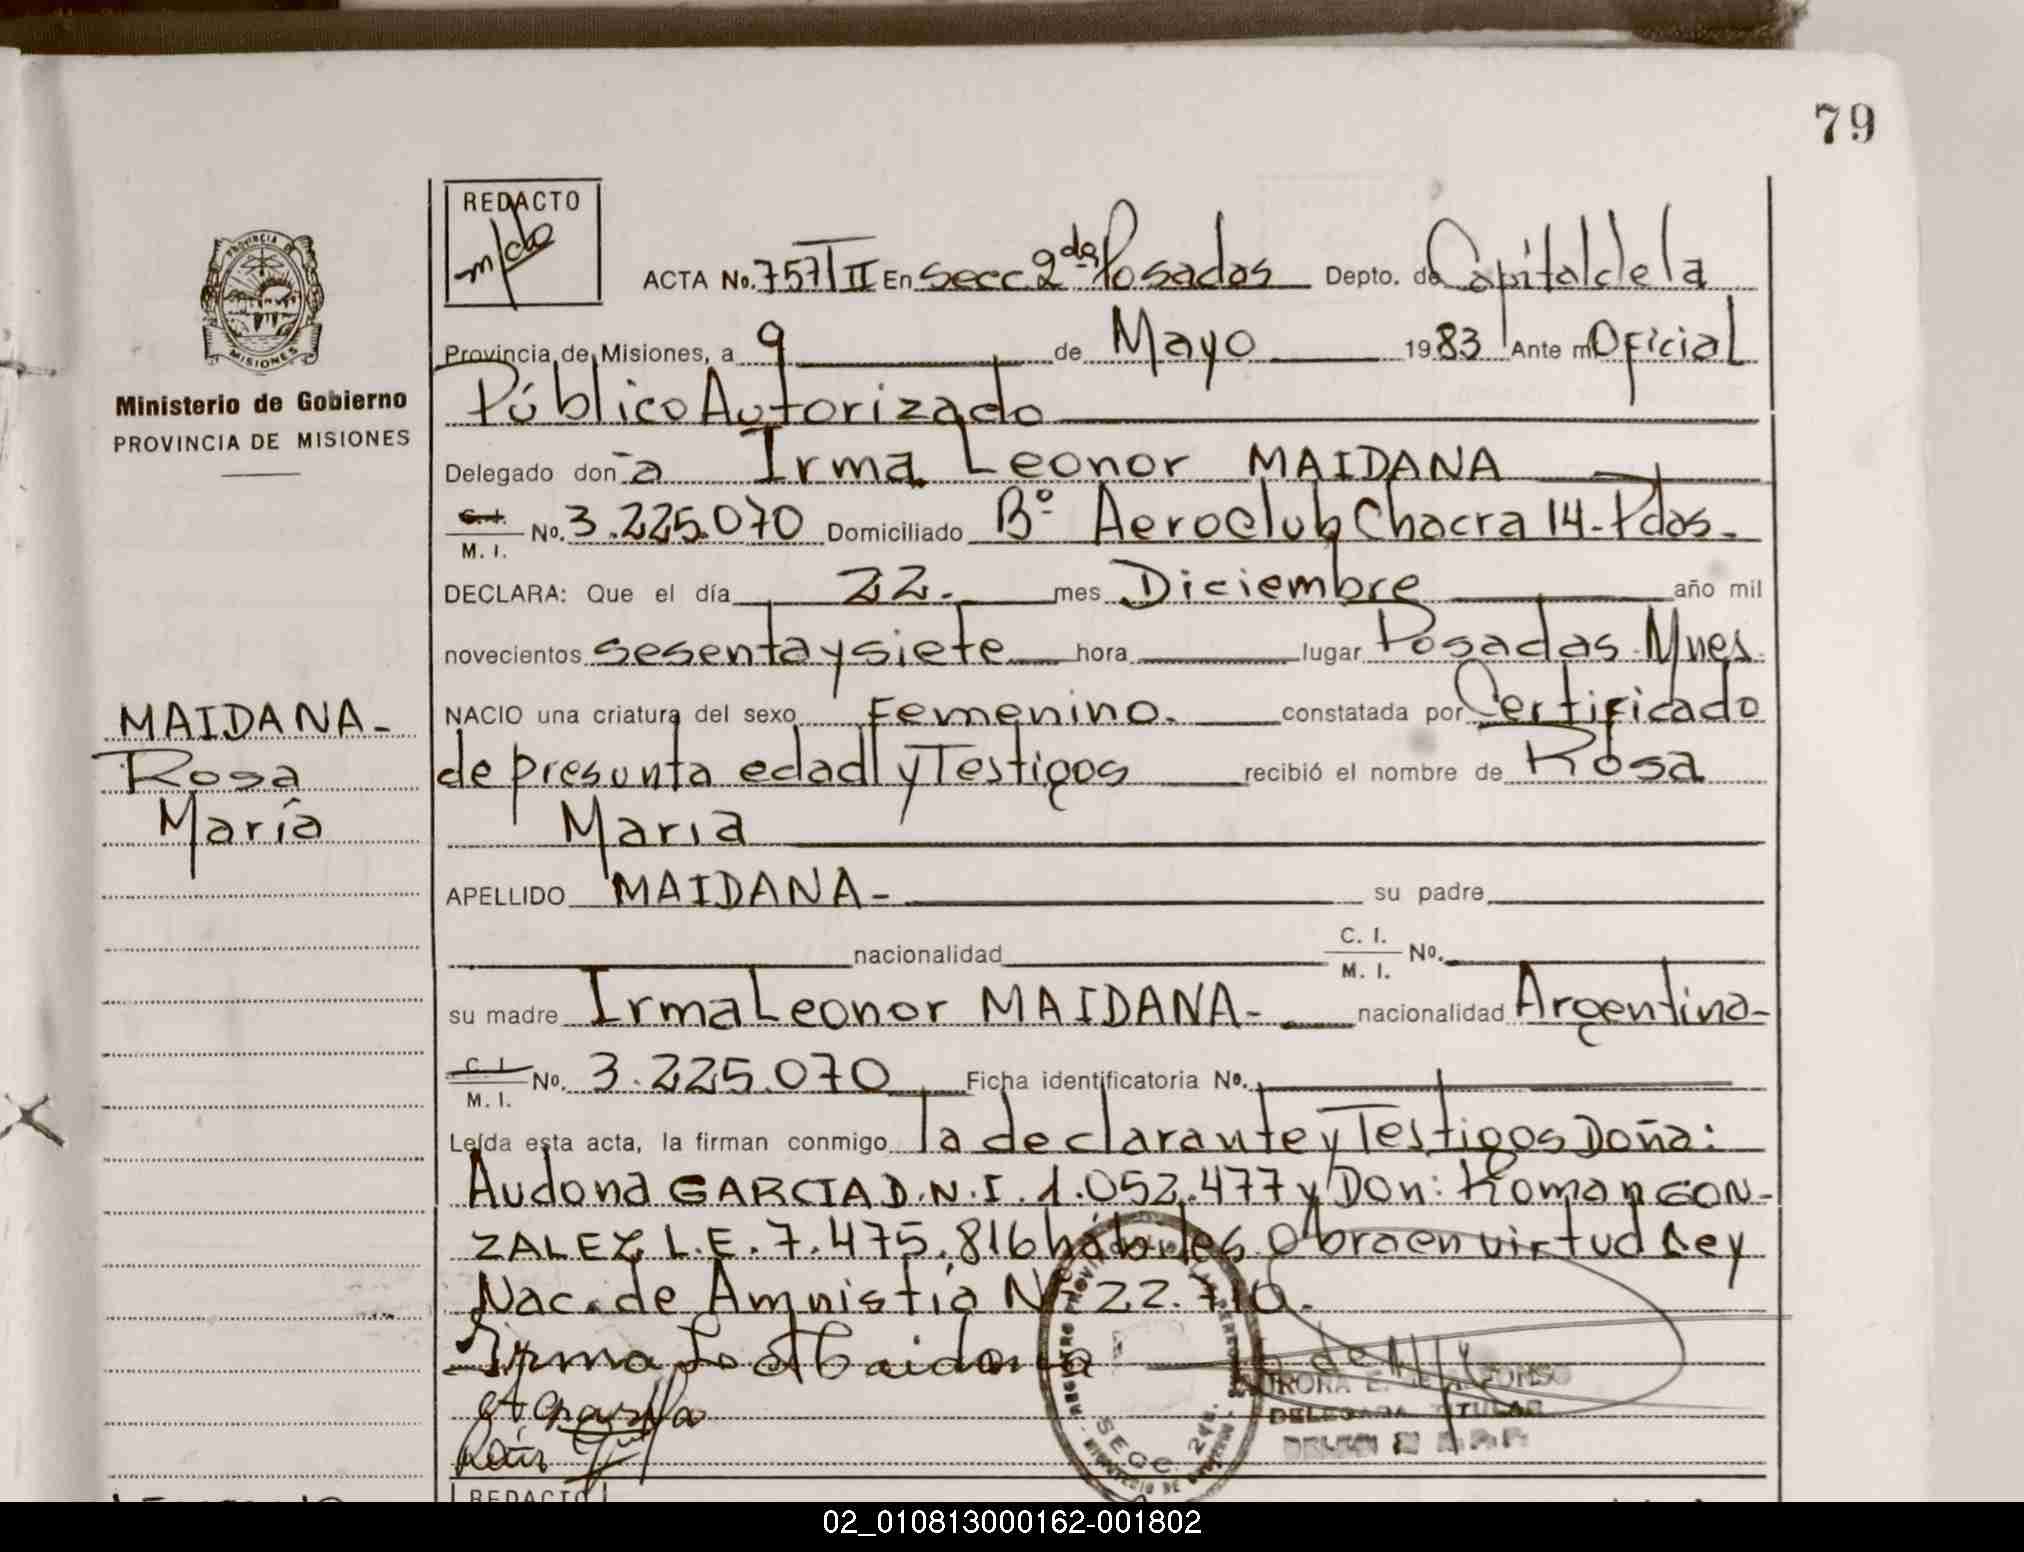 79
REDACTO
ACTA No. 757 II En Secc. 2da Posadas Depto. de Capital de la
PROVINCIA DE MISIONES
Provincia de Misiones, a 9 de Mayo 1983 Ante mí Oficial
Ministerio de Gobierno
PROVINCIA DE MISIONES
Público Autorizado
Delegado don a Irma Leonor MAIDANA
C. I. M. I. No. 3.225.070 Domiciliado Bº Aeroclub Chacra 14-Pdas.
DECLARA: Que el día 22. mes Diciembre año mil
novecientos sesenta y siete hora lugar Posadas Mnes.
MAIDANA-
Rosa
María
NACIO una criatura del sexo Femenino. constatada por Certificado
de presunta edad y Testigos recibió el nombre de Rosa
Maria
APELLIDO MAIDANA- su padre
nacionalidad C. I. M. I. No.
su madre Irma Leonor MAIDANA- nacionalidad Argentina-
C. I. M. I. No. 3.225.070 Ficha identificatoria No.
Leída esta acta, la firman conmigo la declarante y Testigos Doña:
Audona GARCIA D.N.I. 1.052.477 y Don: Roman GON-
ZALEZ L.E. 7.475.816 hábiles. Obra en virtud Ley
Nac. de Amnistía Nº 22.710.
Irma L Maidana
SECC. 2da.
DELEGADA TITULAR
REDACTO
02_010813000162-001802